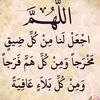 اللَّهُمَّ
اجْعَلْ لَنَا مِنْ كُلِّ ضِيقٍ
مَخْرَجًا وَمِنْ كُلِّ هَمٍّ فَرَجًا
وَمِنْ كُلِّ بَلَاءٍ عَافِيَةً